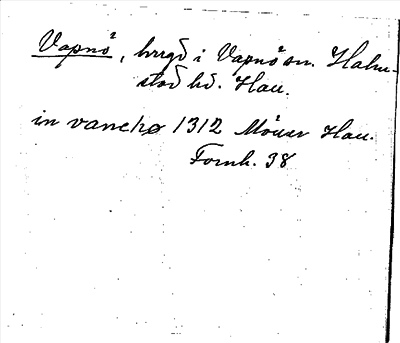 Vapnö, hvrgd i Vapnö sn. Halm-
stad hd. Hall.
in vanehø 1312 Möller Hall.
Fornh. 38